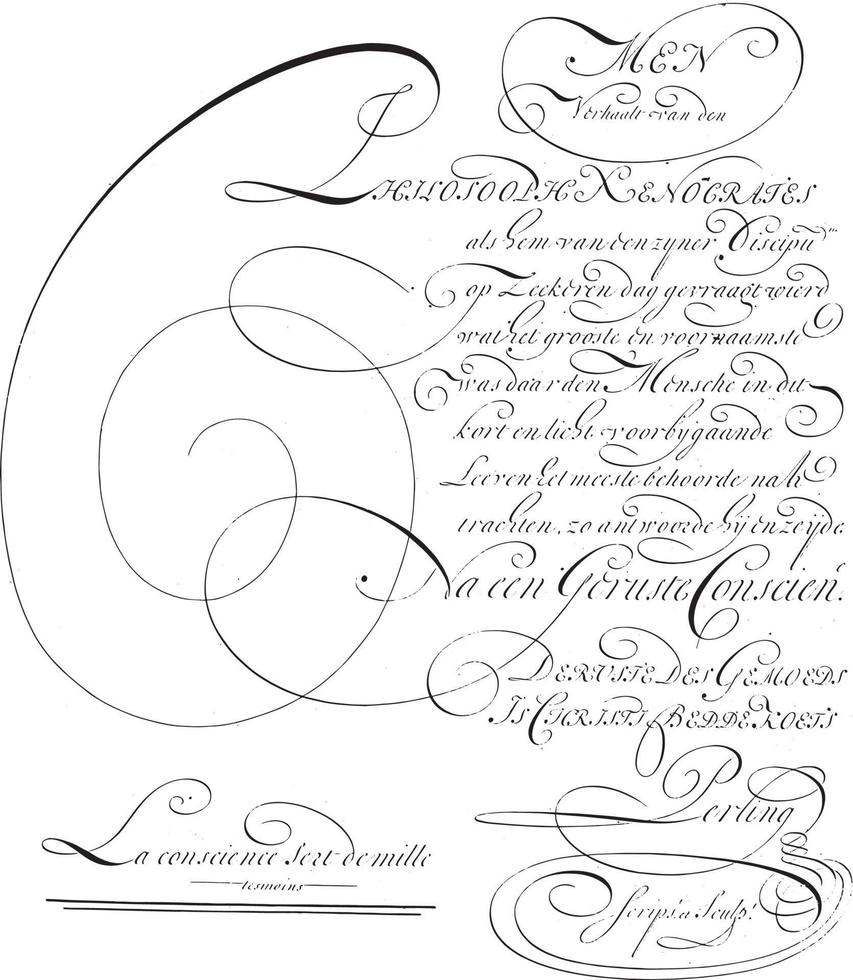 MEN
Verhaalt van den
PHILOSOOPH XENOCRATES
als hem van een zyner Discipu
op Zeekeren dag gevraagt wierd
wat het grooste en voornaamste
was daar den Mensche in dit
kort en licht voorbijgaande
Leeven het meeste behoorde nah
trachten, zo antwoorde hij en zeijde
Na een Geruste Conscien.
DE RUSTE DES GEMOEDS
IS CHRISTI BEDDE KOETS
Perling
Scrips. a Sculp!
La conscience Sert de mille
tesmoins